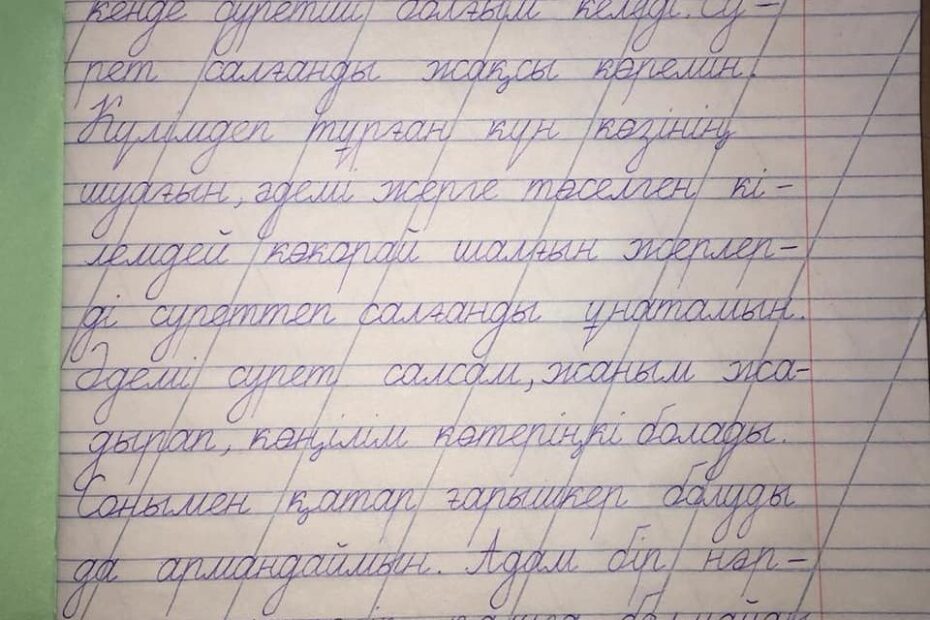 кенде суретші болғым келеді. Су-
рет салғанды жақсы көремін.
Күлімдеп тұрған күн көзінің
шуағын, әдемі жерге төселген кі-
лемдей көкорай шалғын жерлер-
ді суреттеп салғанды ұнатамын.
Әдемі сурет салсам, жаным жа-
дырап, көңілім көтеріңкі болады.
Сонымен қатар ғарышкер болуды
да армандаймын. Адам бір нәр-